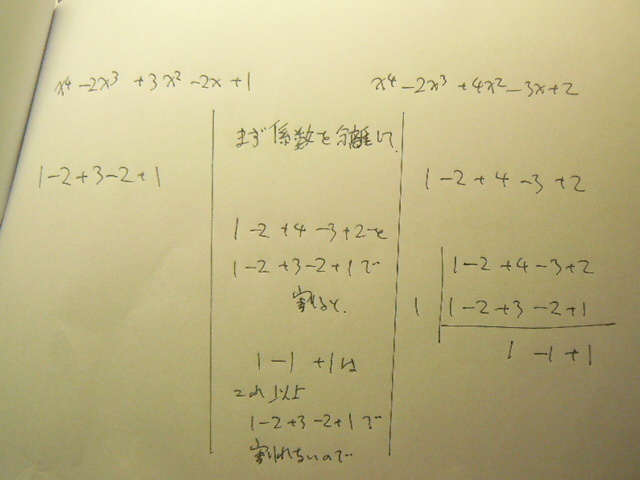 x⁴-2x³+3x²-2x+1
x⁴-2x³+4x²-3x+2
まず係数を分離して、
1-2+3-2+1
1-2+4-3+2
1-2+4-3+2を
1-2+3-2+1で
割ると、
1-1+1は
これ以上
1-2+3-2+1で
割れないので
1-2+4-3+2
1 1-2+3-2+1
1-1+1